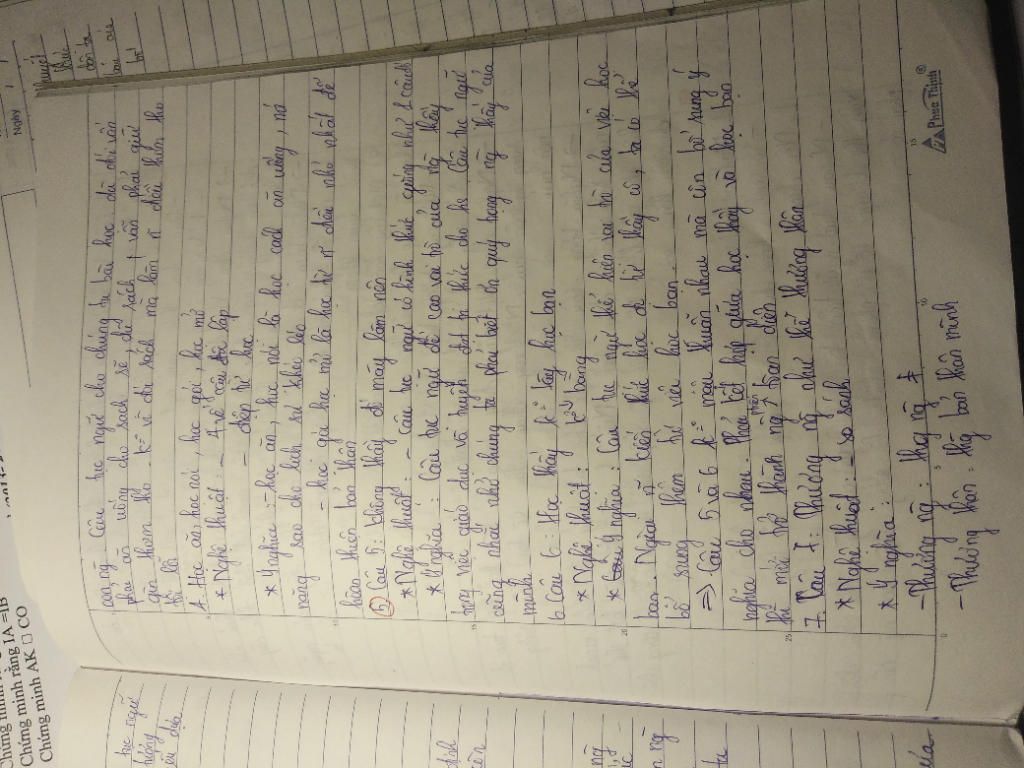 con ng. Câu tục ngữ cho chúng ta bài học dù đói vẫn
phải ăn uống cho sạch sẽ, dù rách vẫn phải giữ
gìn thơm tho. k⁰ vì đói rách mà làm n~ điều thiên
tội lỗi
4. Học ăn, học nói, học gói, học mở
* Nghệ thuật: - 4 vế câu đẳng lập
- điệp từ học
* Ý nghĩa: - học ăn, học nói là học cách ăn uống, nói
năng sao cho lịch sự khéo léo
- học gói học mở là học từ n~ điều nhỏ nhất để
hoàn thiện bản thân
5 Câu 5: không thầy đố mày làm nên
* Nghệ thuật: - câu tục ngữ có hình thức giống như 1 câu đố
* Ý nghĩa: câu tục ngữ đề cao vai trò của ng thầy
trong việc giáo dục và truyền đạt tri thức cho hs. Câu tục ngữ
cũng nhắc nhở chúng ta phải biết ơn quý trọng ng thầy của
mình
6. Câu 6: Học thầy k⁰ tày học bạn
* Nghệ thuật:
k⁰ bằng
* Ý nghĩa: Câu tục ngữ thể hiện vai trò của việc học
bạn. Ngoài n~ kiến thức học đc từ thầy cô, ta có thể
bổ sung thêm từ việc học bạn
=> Câu 5 và 6 k⁰ mâu thuẫn nhau mà còn bổ sung ý
nghĩa cho nhau. Phải kết hợp giữa học thầy và học bạn
thì mới trở thành ng toàn diện
7. Câu 7: Thương ng như thể thương thân
* Nghệ thuật: - so sánh
* Ý nghĩa:
- Thương ng: thg ng ≠
- Thương thân: thg bản thân mình
Phúc Thịnh ®
Chứng minh rằng IA = IB
Chứng minh AK □ CO
Ngày
tục ngữ